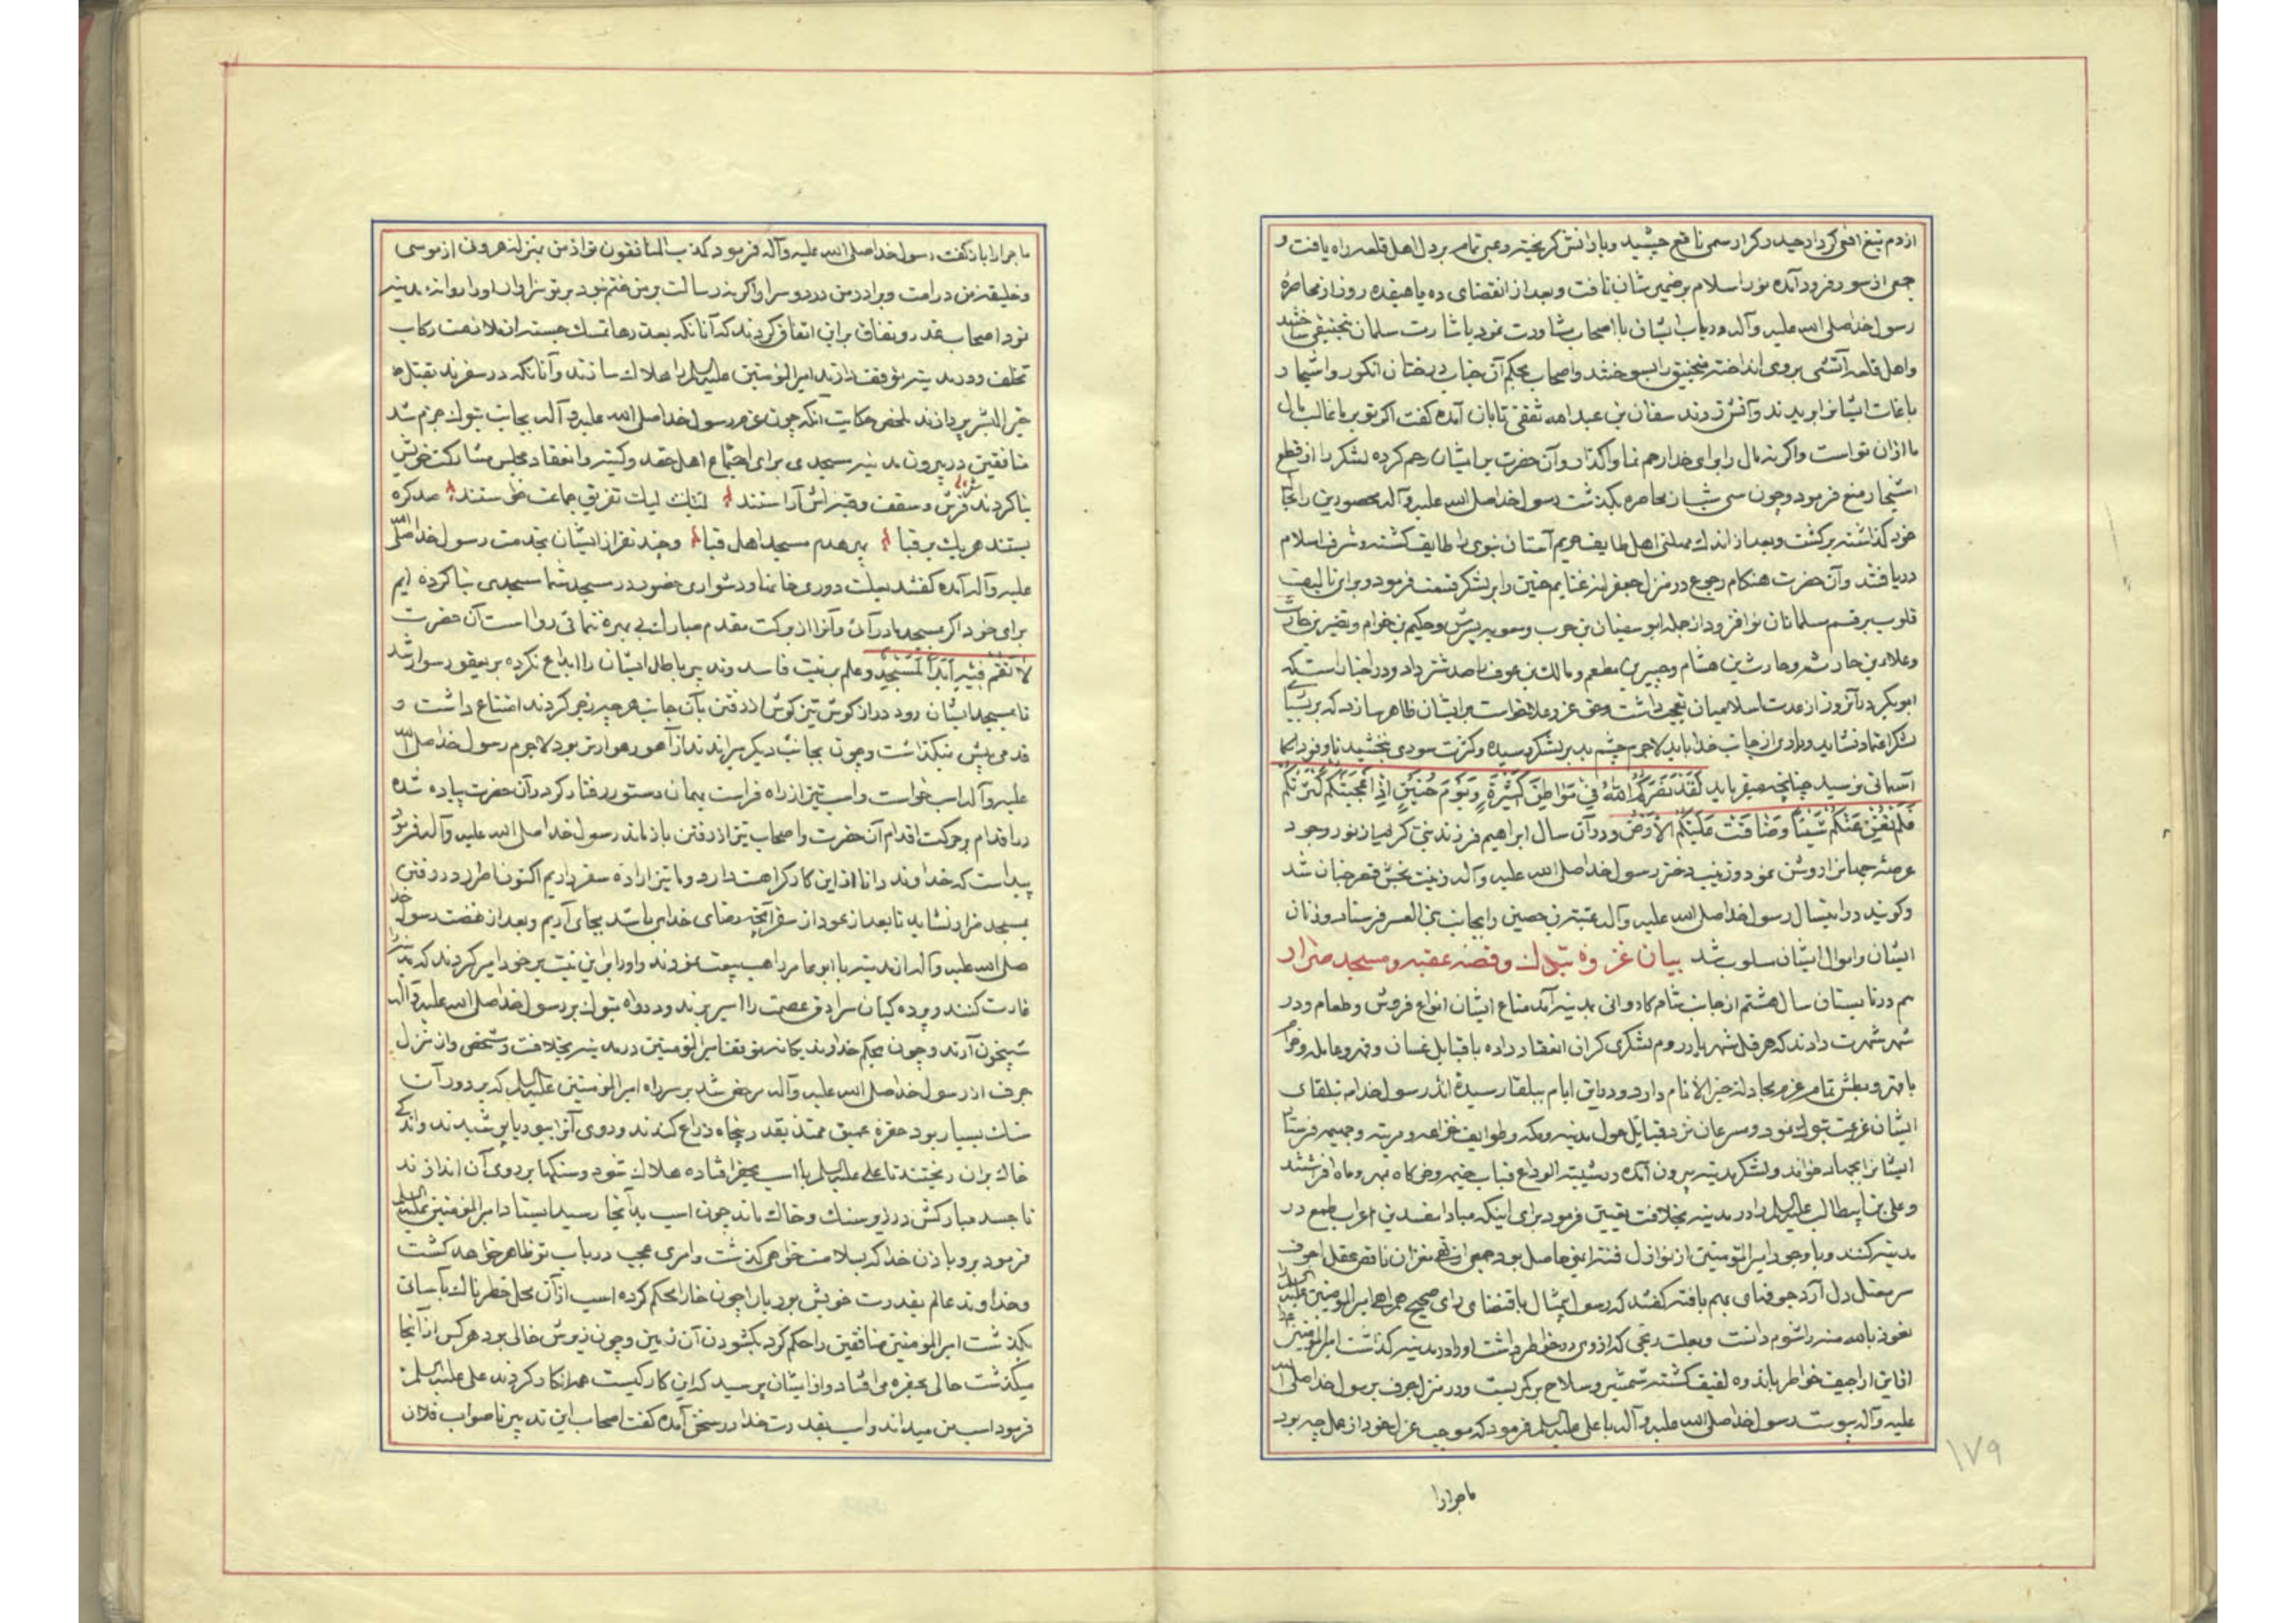 ازدم تیغ افعی کردار حیدر کرار سمی ناقع چشید ویارانش کریخته رعبی تمام بردل اهل قلعه راه یافت و
جمعی از سور فرود آمده نور اسلام برضمیر شان تافت وبعد از انقضای ده یا هیفده روز از محاصرهٔ
رسول خدا صلی الله علیه وآله درباب ایشان با اصحاب مشاورت نمود باشارت سلمان منجنیقی ساختند
واهل قلعه آتشی بروی انداخته منجنیق را بسوختند واصحاب بحکم آن جناب درختان انکور واشجار
باغات ایشانرا بریدند وآتش زدند سفان بن عبدالله ثقفی تابان آمده کفت اکر تو برما غالب مال
ما ازان تو است واکر نه مال را برای خدا رحم نما واکذار وآن حضرت بر ایشان رحم کرده لشکر را از قطع
اشجار منع فرمود وچون سی شبان محاصره بکذشت رسول خدا صلی الله علیه وآله محصورین را بجای
خود کذاشته برکشت وبعد از اندک مهلتی اهل طایف حریم آستان نبوی را طایف کشته وشرف اسلام
دریافتند وآن حضرت هنکام رجوع در منزل جعرانه غنایم حنین را بر لشکر قسمت فرمود وبرای تالیف
قلوب بر قسم مسلمانان نو افزود ازجمله ابو سفیان بن حرب ومعویه پسرش وحکیم بن حزام ونضیر بن حارث
وعلاء بن حارثه وحارث بن هشام وجبیر بن مطعم ومالک بن عوف را صد شتر داد ودر اخبار است که
ابوبکر در آنروز از عدت اسلامیان تعجب داشت وحق عز وعلا خواست بر ایشان ظاهر سازد که بر بسیاری
لشکر اعتماد نشاید ویاری از جانب خدا باید لاجرم چشم بد بر لشکر رسیده وکثرت سودی نبخشید تا وفود
آسمانی نرسید چنانچه میفرماید لَقَدْ نَصَرَكُمُ اللهُ فِي مَوَاطِنَ كَثِيرَةٍ وَيَوْمَ حُنَيْنٍ إِذْ أَعْجَبَتْكُمْ كَثْرَتُكُمْ
فَلَمْ تُغْنِ عَنْكُمْ شَيْئًا وَضَاقَتْ عَلَيْكُمُ الْأَرْضُ ودرآن سال ابراهیم فرزند نبی کریم از نور وجود
عرصهٔ جهانرا روشن نمود وزینب دختر رسول خدا صلی الله علیه وآله زینت بخش قصر جنان شد
وکویند در اینسال رسول خدا صلی الله علیه وآله عیینه بن حصین را بجانب بنی العنبر فرستاد وزنان
ایشان واموال ایشان مسلوب شد بیان غزوه تبوک وقصه عقبه ومسجد ضرار
هم در تابستان سال هشتم از جانب شام کاروانی بمدینه آمد متاع ایشان انواع فروش وطعام ودر
شهر شهرت دادند که هرقل شهریار روم لشکری کران انعقاد داده با قبایل غسان
با قهر وبطش تمام عزم مجادله خیر الانام دارد ودر این ایام ببلقا رسیده اند رسول خدا م بتلقای
ایشان عزیمت تبوک نمود وسرعان نزد قبایل حول مدینه ومکه وطوایف خزاعه ومزینه وجهینه فرستاد
ایشانرا بجهاد خواند ولشکر مدینه بیرون آمده در ثنیة الوداع قباب خیمه وخرکاه بمهر وماه افراشتند
وعلی بن ابیطالب علیه السلم را در مدینه بخلافت تعیین فرمود برای اینکه مبادا مفسدین اعراب طمع در
مدینه کنند وبا وجود امیر المومنین از نوازل فتنه ایمنی حاصل بود جمعی از نفران ناقص عقل اجوف
که رسول بیمثال باقتضای رای صحیح همراهی امیر المومنین علیه السلم
نعوذ بالله منه را شوم دانست وبعلت رنجی که از وی در خاطر داشت او را در مدینه کذاشت امیر المومنین
ازاین اراجیف خاطر باندوه لفیف کشته شمشیر وسلاح برکمر بست ودر منزل جرف برسول خدا صلی الله
علیه وآله پیوست رسول خدا صلی الله علیه وآله با علی علیه السلم فرمود که موجب عزل خود از عمل چه بود
ماجرارا
۱۷۹
ماجرارا باز کفت رسول خدا صلی الله علیه وآله فرمود کذب المنافقون تو از من بمنزله هرونی از موسی
وخلیفه من در امت وبرادر من در دو سرا واکر نه رسالت بر من ختم بود بر تو سزاوار او را روانه مدینه
نمود اصحاب غدر ونفاق براین اتفاق کردند که آنانکه بعذرها تمسک جسته از ملازمت رکاب
تخلف ودر مدینه توقف دارند امیر المؤمنین علیه السلم را هلاک سازند وآنانکه در سفرند بقتل
خیر البشر پردازند ملخص حکایت آنکه چون عزم رسول خدا صلی الله علیه وآله بجانب تبوک جزم شد
منافقین در بیرون مدینه مسجدی برای اجتماع اهل حقد وکینه وانعقاد مجلس مشارکت خویش
بنا کردند فرش وسقف وقنبراش آراستند لنیک لیک تفریق جماعت خواستند صد کره
بستند هر یک بر قبا بهر هدم مسجد اهل قبا وچند نفر از ایشان بخدمت رسول خدا صلی الله
علیه وآله آمده کفتند بعلت دوری خانها ودشواری حضور در مسجد شما مسجدی بنا کرده ایم
برای خود اکر بمسجد ما در آئی وآنرا از برکت مقدم مبارک بی بهره ننمائی روا است آن حضرت
لَا تَقُمْ فِيهِ أَبَدًا لَمَسْجِدٌ وعلم بر نیت فاسد وتدبیر باطل ایشان را ابداع نکرده بر یعفور سوار شد
تا بمسجد ایشان رود دراز کوش تیز کوش از رفتن بآن جانب هر چه زجر کردند امتناع داشت و
قدمی پیش نیکذاشت وچون بجانب دیکر میراندند از آهو رهوارتر بود لاجرم رسول خدا صلی الله
علیه وآله اسب خواست واسب نیز از راه فراست بهمان دستور رفتار کرد وآن حضرت پیاده شده
در اقدام بحرکت اقدام آن حضرت واصحاب نیز از رفتن باز ماند رسول خدا صلی الله علیه وآله فرمود
پیداست که خداوند دانا از این کار کراهت دارد وما نیز اراده سفر داریم اکنون خاطر در رفتن
بمسجد ضرار نشاید تا بعد از عود از سفر آنچه رضای خدا می باشد بجای آریم وبعد از نهضت رسول خدا
صلی الله علیه وآله از مدینه با ابو عامر راهب بیعت نمودند واورا براین نیت بر خود امیر کردند که مدینه را
غارت کنند وپرده کیان سرادق عصمت را اسیر برند ودر راه تبوک بر رسول خدا صلی الله علیه وآله
شبیخون آرند وچون بحکم خداوند یکانه توقف امیر المؤمنین در مدینه بخلافت مشخص واز منزل
جرف از رسول خدا صلی الله علیه وآله مرخص شد بر سر راه امیر المؤمنین علیه السلم که بر دور آن
سنک بسیار بود حفرهٔ عمیق ممتد بقدر پنجاه ذراع کندند وروی آنرا ببوریا پوشیدند واندکی
خاک بران ریختند تا علی علیه السلم با اسب بحفره افتاده هلاک شود وسنکها بر روی آن اندازند
تا جسد مبارکش در زیر سنک وخاک ماند چون اسب بدآنجا رسید ایستاد امیر المؤمنین علیه السلم
فرمود برو باذن خدا که بسلامت خواهی کذشت وامری عجیب درباب تو ظاهر خواهد کشت
وخداوند عالم بقدرت خویش بوریا را چون خارا محکم کرده اسب از آن محل خطرناک بآسانی
بکذشت امیر المؤمنین منافقین را حکم کرد بکشودن آن زمین وچون زیرش خالی بود هر کس از آنجا
میکذشت حالی بحفره می افتاد واز ایشان پرسید که این کار کیست همه انکار کردند علی علیه السلم
فرمود اسب من میداند واسب بقدرت خدا در سخن آمده کفت اصحاب این تدبیر ناصواب فلان